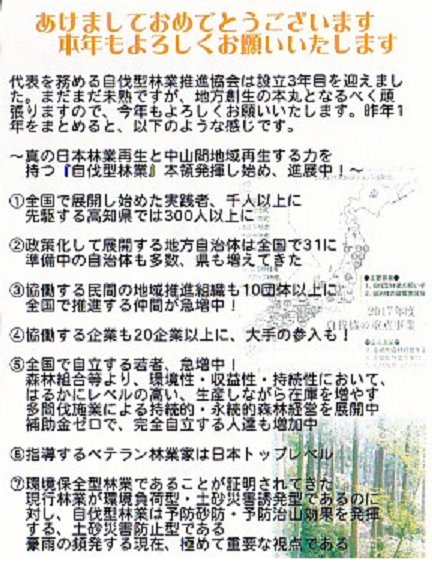 あけましておめでとうございます
本年もよろしくお願いいたします
代表を務める自伐型林業推進協会は設立3年目を迎えまし
た。まだまだ未熟ですが、地方創生の本丸となるべく頑
張りますので、今年もよろしくお願いいたします。昨年1
年をまとめると、以下のような感じです。
～真の日本林業再生と中山間地域再生する力を
持つ『自伐型林業』本領発揮し始め、進展中！～
①全国で展開し始めた実践者、千人以上に
先駆する高知県では300人以上に
②政策化して展開する地方自治体は全国で31に
準備中の自治体も多数、県も増えてきた
③協働する民間の地域推進組織も10団体以上に
全国で推進する仲間が急増中！
④協働する企業も20企業以上に、大手の参入も！
⑤全国で自立する若者、急増中！
森林組合等より、環境性・収益性・持続性において、
はるかにレベルの高い、生産しながら在庫を増やす
多間伐施業による持続的・永続的森林経営を展開中
補助金ゼロで、完全自立する人達も増加中
⑥指導するベテラン林業家は日本トップレベル
⑦環境保全型林業であることが証明されてきた
現行林業が環境負荷型・土砂災害誘発型であるのに
対し、自伐型林業は予防砂防・予防治山効果を発揮
する、土砂災害防止型である
豪雨の頻発する現在、極めて重要な視点である
2017年度
自伐協の重点事業